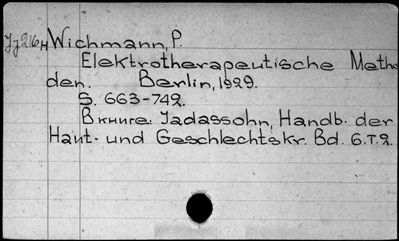 Jj216H Wichmann, P.
Elektrotherapeutische Metho
den. Berlin, 1929.
S. 663-742.
В книге: Jadassohn, Handb. der
Haut- und Geschlechtskr. Bd. 6.T.2.